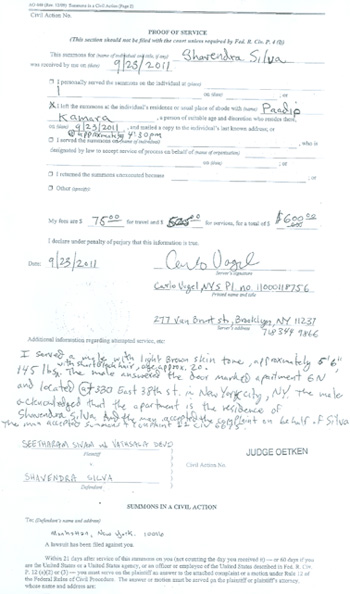 AO 440 (Rev. 12/09) Summons in a Civil Action (Page 2)
Civil Action No.
PROOF OF SERVICE
(This section should not be filed with the court unless required by Fed. R. Civ. P. 4 (l))
This summons for (name of individual and title, if any) Shavendra Silva
was received by me on (date) 9/23/2011
I personally served the summons on the individual at (place)
on (date) ; or
X I left the summons at the individual's residence or usual place of abode with (name) Paadip
Kamara , a person of suitable age and discretion who resides there,
on (date) 9/23/2011 , and mailed a copy to the individual's last known address; or
approximately 4:30pm
I served the summons on (name of individual) , who is
designated by law to accept service of process on behalf of (name of organization)
on (date) ; or
I returned the summons unexecuted because ; or
Other (specify):
My fees are $ 75.00 for travel and $ for services, for a total of $ $600.00
I declare under penalty of perjury that this information is true.
Date: 9/23/2011 Carlo Vogel
Server's signature
Carlo Vogel NYS PI no. 11000118756
Printed name and title
277 Van Brunt st, Brooklyn, NY 11231
Server's address 718 349 9866
Additional information regarding attempted service, etc:
I served a male with light Brown skin tone, approximately 5'6"
145 lbs. with short black hair, age approx. 20.
The male answered the door marked apartment 6N
and located @ 330 East 38th st. in New York city, NY. The male
acknowledged that the apartment is the residence of
Shavendra Silva and the man accepted the complaint on behalf of Silva
The man accepted summons & complaint
SEETHARAM SIVAM vs VATHSALA DEVO
Plaintiff
v.
SHAVENDRA SILVA
Defendant
JUDGE OETKEN
Civil Action No.
SUMMONS IN A CIVIL ACTION
To: (Defendant's name and address)
Manhattan, New York. 10016
A lawsuit has been filed against you.
Within 21 days after service of this summons on you (not counting the day you received it) — or 60 days if you
are the United States or a United States agency, or an officer or employee of the United States described in Fed. R. Civ.
P. 12 (a)(2) or (3) — you must serve on the plaintiff an answer to the attached complaint or a motion under Rule 12 of
the Federal Rules of Civil Procedure. The answer or motion must be served on the plaintiff or plaintiff's attorney,
whose name and address are: